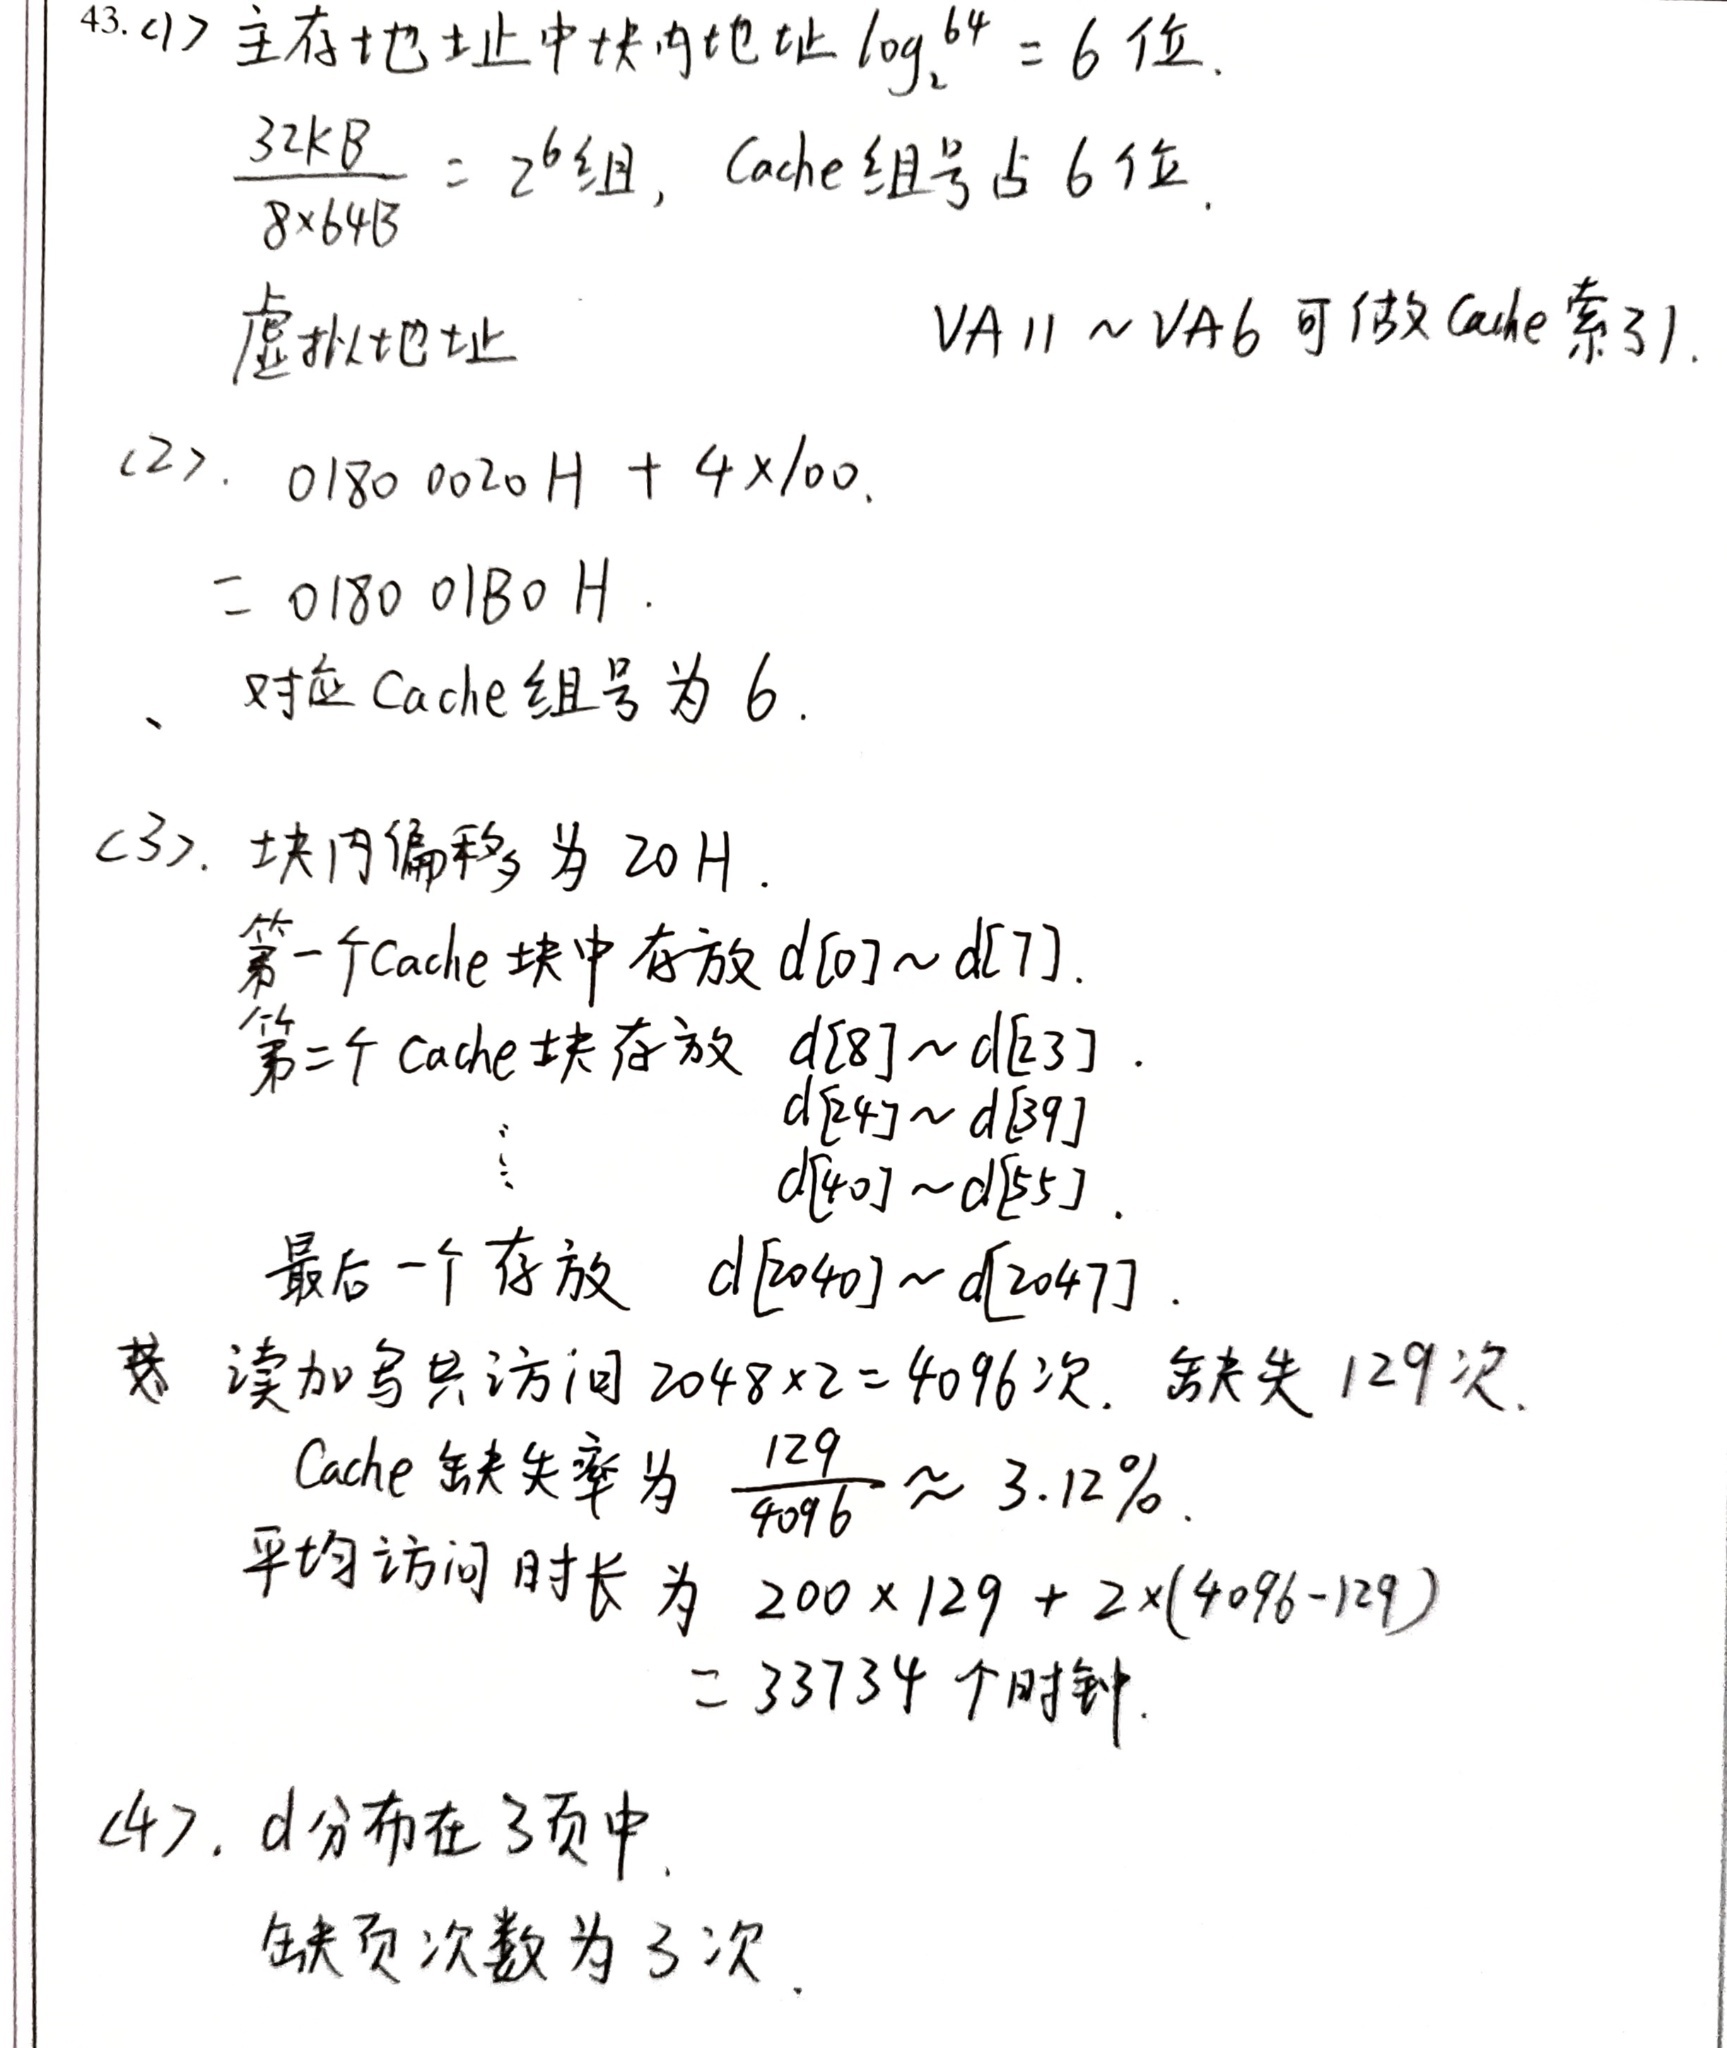 43.<1> 主存地址中块内地址 log₂⁶⁴ = 6 位.
32KB / 8×64B = 2⁶组, Cache组号占 6 位.
虚拟地址 VA11 ~ VA6 可做Cache索引.
<2>. 0180 0020 H + 4×100.
= 0180 01B0 H .
、 对应Cache组号为 6 .
<3>. 块内偏移为 20H .
第一个Cache块中存放 d[0] ~ d[7].
第二个Cache块存放 d[8] ~ d[23] .
d[24] ~ d[39]
⋮ d[40] ~ d[55] .
最后一个存放 d[2040] ~ d[2047] .
读加写共访问 2048×2 = 4096次. 缺失 129次.
Cache缺失率为 129/4096 ≈ 3.12%.
平均访问时长为 200×129 + 2×(4096-129)
= 33734 个时钟.
<4>. d分布在3页中.
缺页次数为 3 次 .